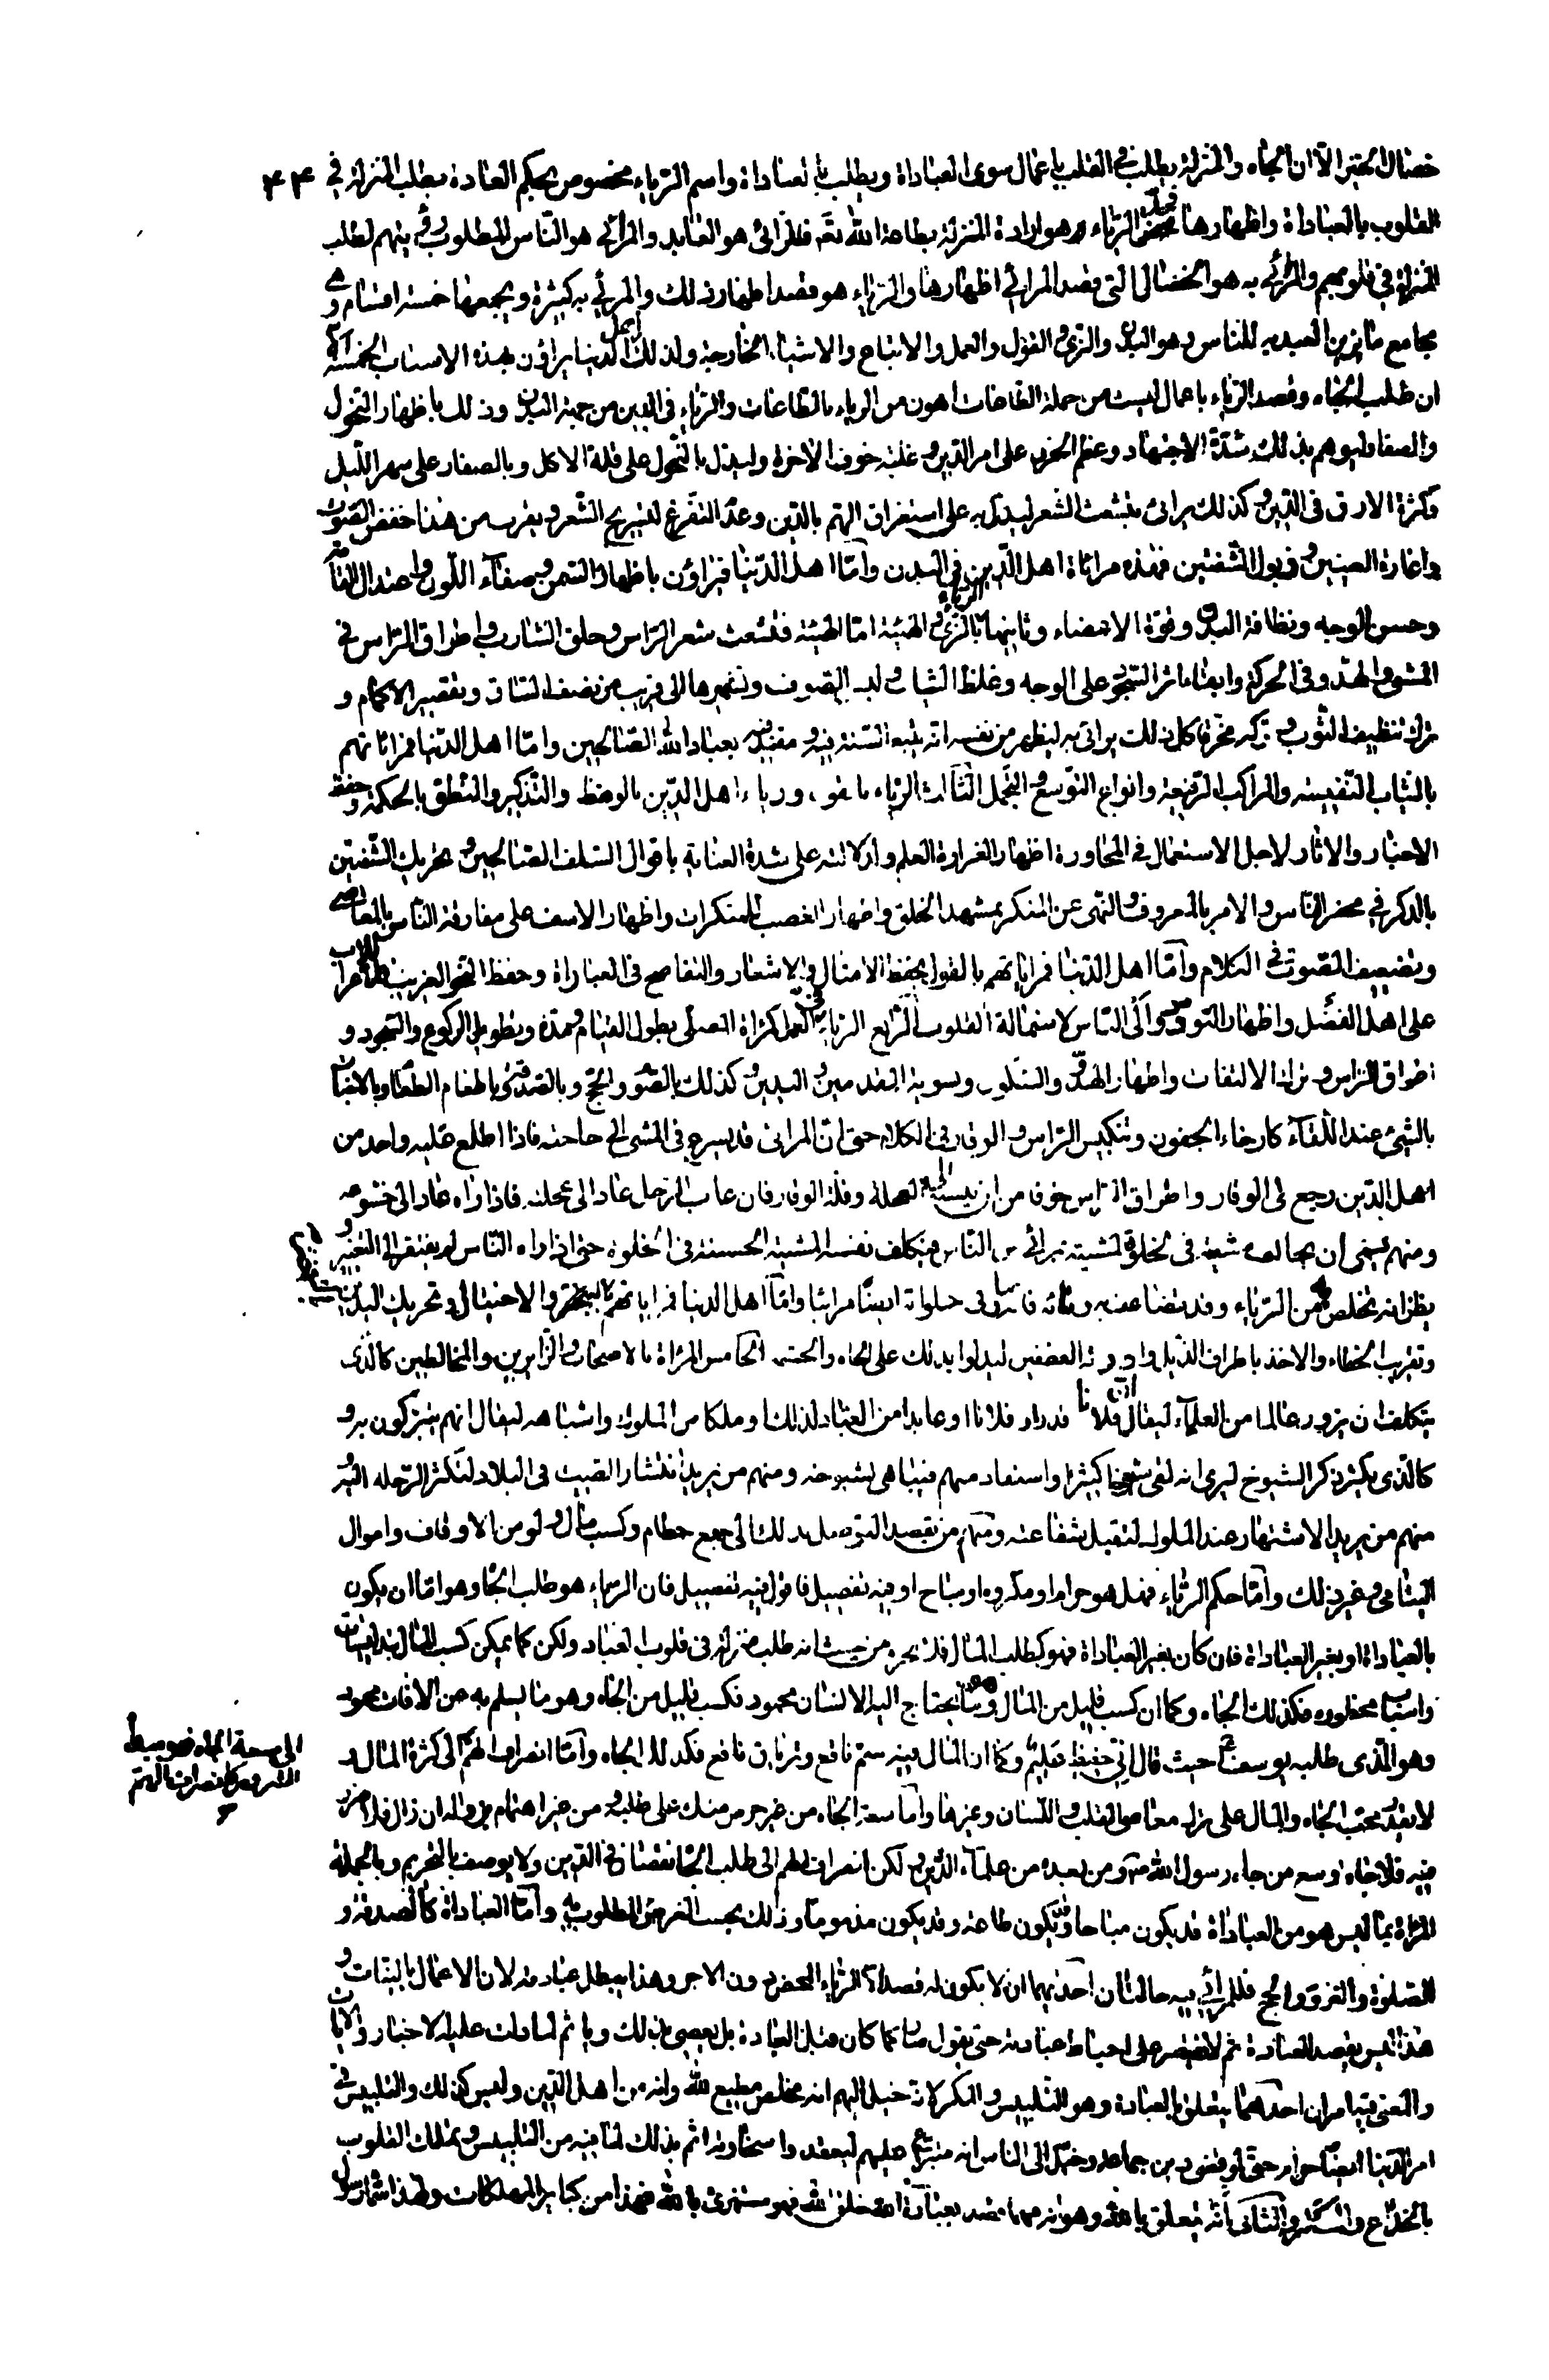 خصال الخير الا ان الجاه والمنزلة يطلب في القلب باعمال سوى العباداة ويطلب بالعباداة واسم الرياء مخصوص بحكم العادة بطلب المنزلة في ٤٤
القلوب بالعباداة واظهارها فحد الرياء هو ارادة المنزلة بطاعة الله تعـ فالمرائي هو العابد والمرائى هو الناس المطلوب رؤيتهم لطلب
المنزلة في قلوبهم والمرائى به هو الخصال التي قصد المرائي اظهارها والرياء هو قصد اظهار ذلك والمرائى به كثيرة ويجمعها خمسة اقسام وهي
مجامع ما يتزين العبد به للناس وهو البدن والزي والقول والعمل والاتباع والاشياء الخارجة ولذلك اهل الدنيا يراؤن بهذه الاسباب الخمسة الا
ان طلب الجاه وقصد الرياء باعمال ليست من جملة الطاعات اهون من الرياء بالطاعات والرياء في الدين من جهة البدن وذلك باظهار النحول
والصفار ليوهم بذلك شدة الاجتهاد وعظم الحزن على امر الدين وغلبة خوف الاخرة وليدل بالنحول على قلة الاكل وبالصفار على سهر الليل
وكثرة الارق في الدين وكذلك يرائي بتشعث الشعر ليدل به على استغراق الهم بالدين وعدم التفرغ لتسريح الشعر ويقرب من هذا خفض الصوت
واغارة العينين وذبول الشفتين فهذه مراءاة اهل الدين في البدن واما اهل الدنيا فيراؤن باظهار السمن وصفاء اللون واعتدال القامة
وحسن الوجه ونظافة البدن وقوة الاعضاء وثانيها الرياء بالزي والهيئة اما الهيئة فتشعث شعر الراس وحلق الشارب واطراق الراس في
المشي والهدو في الحركة وابقاء اثر السجود على الوجه وغلظ الثياب ولبس الصوف وتشميرها الى قريب من نصف الساق وتقصير الاكمام و
ترك تنظيف الثوب وتركه مخرقا كل ذلك يرائي به ليظهر من نفسه انه يتبع السنة فيه ومقتد فيه بعباد الله الصالحين واما اهل الدنيا فمراءاتهم
بالثياب النفيسة والمراكب الرفيعة وانواع التوسع والتجمل الثالث الرياء بالقول ورياء اهل الدين بالوعظ والتذكير والنطق بالحكمة وحفظ
الاخبار والاثار لاجل الاستعمال في المحاورة اظهارا لغزارة العلم ودلالته على شدة العناية باقوال السلف الصالحين وتحريك الشفتين
بالذكر في محضر الناس والامر بالمعروف والنهى عن المنكر بمشهد الخلق واظهار الغضب للمنكرات واظهار الاسف على مقارفة الناس بالمعاصي
وتضعيف الصوت في الكلام واما اهل الدنيا فمراءاتهم بالقول بحفظ الامثال والاشعار والتفاصح في العباراة وحفظ النحو الغريب للاغراب
على اهل الفضل واظهار التودد الى الناس لاستمالة القلوب الرابع الرياء في العمل كمراءاة المصلي بطول القيام ومده وتطويل الركوع والسجود و
اطراق الراس وترك الالتفات واظهار الهدو والسكون وتسوية القدمين واليدين وكذلك بالصوم والحج وبالصدقة وباطعام الطعام وبالاخبات
بالشيء عند اللقاء كارخاء الجفون وتنكيس الراس والوقار في الكلام حتى ان المرائي قد يسرع في المشي الى حاجته فاذا اطلع عليه واحد من
اهل الدين رجع الى الوقار واطراق الراس خوفا من ان ينسبه الى العجلة وقلة الوقار فان غاب الرجل عاد الى عجلته فاذا راه عاد الى خشوعه
ومنهم يستحيى ان يخالف مشيته في الخلوة لمشيته بمرائ من الناس فيكلف نفسه المشية الحسنة في الخلوة حتى اذا راه الناس لم يفتقر الى التغيير و
يظن انه تخلص من الرياء وقد تضاعف به رياؤه فانه صار في خلواته ايضا مرائيا واما اهل الدنيا فمراءاتهم بالتبختر والاختيال وتحريك اليدين
وتقريب الخطاء والاخذ باطراف الذيل وادارة العطفين ليدلوا بذلك على الجاه والحشمة الخامس المراءاة بالاصحاب والزايرين والمخالطين كالذي
يتكلف ان يزور عالما من العلماء ليقال ان فلانا قد زار فلانا او عابدا من العباد لذلك او ملكا من الملوك واشباهه ليقال انهم يتبركون به و
كالذي يكثر ذكر الشيوخ ليرى انه لقى شيوخا كثيرا واستفاد منهم فيتباهى بشيوخه ومنهم من يريد انتشار الصيت في البلاد لتكثر الرحلة اليه و
منهم من يريد الاشتهار عند الملوك لتقبل شفاعته ومنهم من يقصد التوصل بذلك الى جمع حطام وكسب مال ولو من الاوقاف واموال
اليتامى وغير ذلك واما حكم الرياء فهل هو حرام او مكروه او مباح او فيه تفصيل فاقول فيه تفصيل فان الرياء هو طلب الجاه وهو اما ان يكون
بالعباداة او بغير العباداة فان كان بغير العباداة فهو كطلب المال فلا يحرم من حيث انه طلب منزلة في قلوب العباد ولكن كما يمكن كسب المال بتلبيسات
واسباب محظورة فكذلك الجاه وكما ان كسب قليل من المال وهو ما يحتاج اليه الانسان محمود فكسب قليل من الجاه وهو ما يسلم به عن الافات محمود
وهو الذي طلبه يوسف ع حيث قال اني حفيظ عليم وكما ان المال فيه سم ناقع وترياق نافع فكذلك الجاه واما انصراف الهم الى كثرة المال و
لا يقدر محب الجاه والمال على ترك معاصي القلب واللسان وغيرها واما سعة الجاه من غير حرص منك على طلبه ومن غير اهتمام بزواله ان زال فلا ضرر
فيه فلا جاه اوسع من جاه رسول الله ص ومن بعده من علماء الدين ولكن انصراف الهم الى طلب الجاه نقصان في الدين ولا يوصف بالتحريم وبالجملة
المراءاة بما ليس هو من العباداة قد يكون مباحا وقد يكون طاعة وقد يكون مذموما وذلك بحسب الغرض المطلوب به واما العباداة كالصدقة و
الصلوة والغزو والحج فللمرائي فيه حالتان احديهما ان لا يكون له قصد الا الرياء المحض دون الاجر وهذا يبطل عبادته لان الاعمال بالنيات و
هذا ليس بقصد العبادة ثم لا يقتصر على احباط عبادته حتى يقول صار كما كان قبل العبادة بل يعصي بذلك وياثم لما دلت عليه الاخبار والايات
والمعنى فيه امران احدهما يتعلق بالعبادة وهو التلبيس والمكر لانه خيل اليهم انه مخلص مطيع لله وانه من اهل الدين وليس كذلك والتلبيس في
امر الدنيا ايضا حرام حتى لو قضى دين جماعة وخيل الى الناس انه متبرع عليهم ليعتقدوا سخاوته اثم بذلك لما فيه من التلبيس وتملك القلوب
بالخداع والمكر والثاني انه يتعلق بالله وهو انه مهما قصد بعبادة الله خلق الله فهو مستهزئ بالله فهذا من كباير المهلكات ولهذا سماه رسول
الى سعة الجاه فهو مبدا
الشرور كانصراف الهم